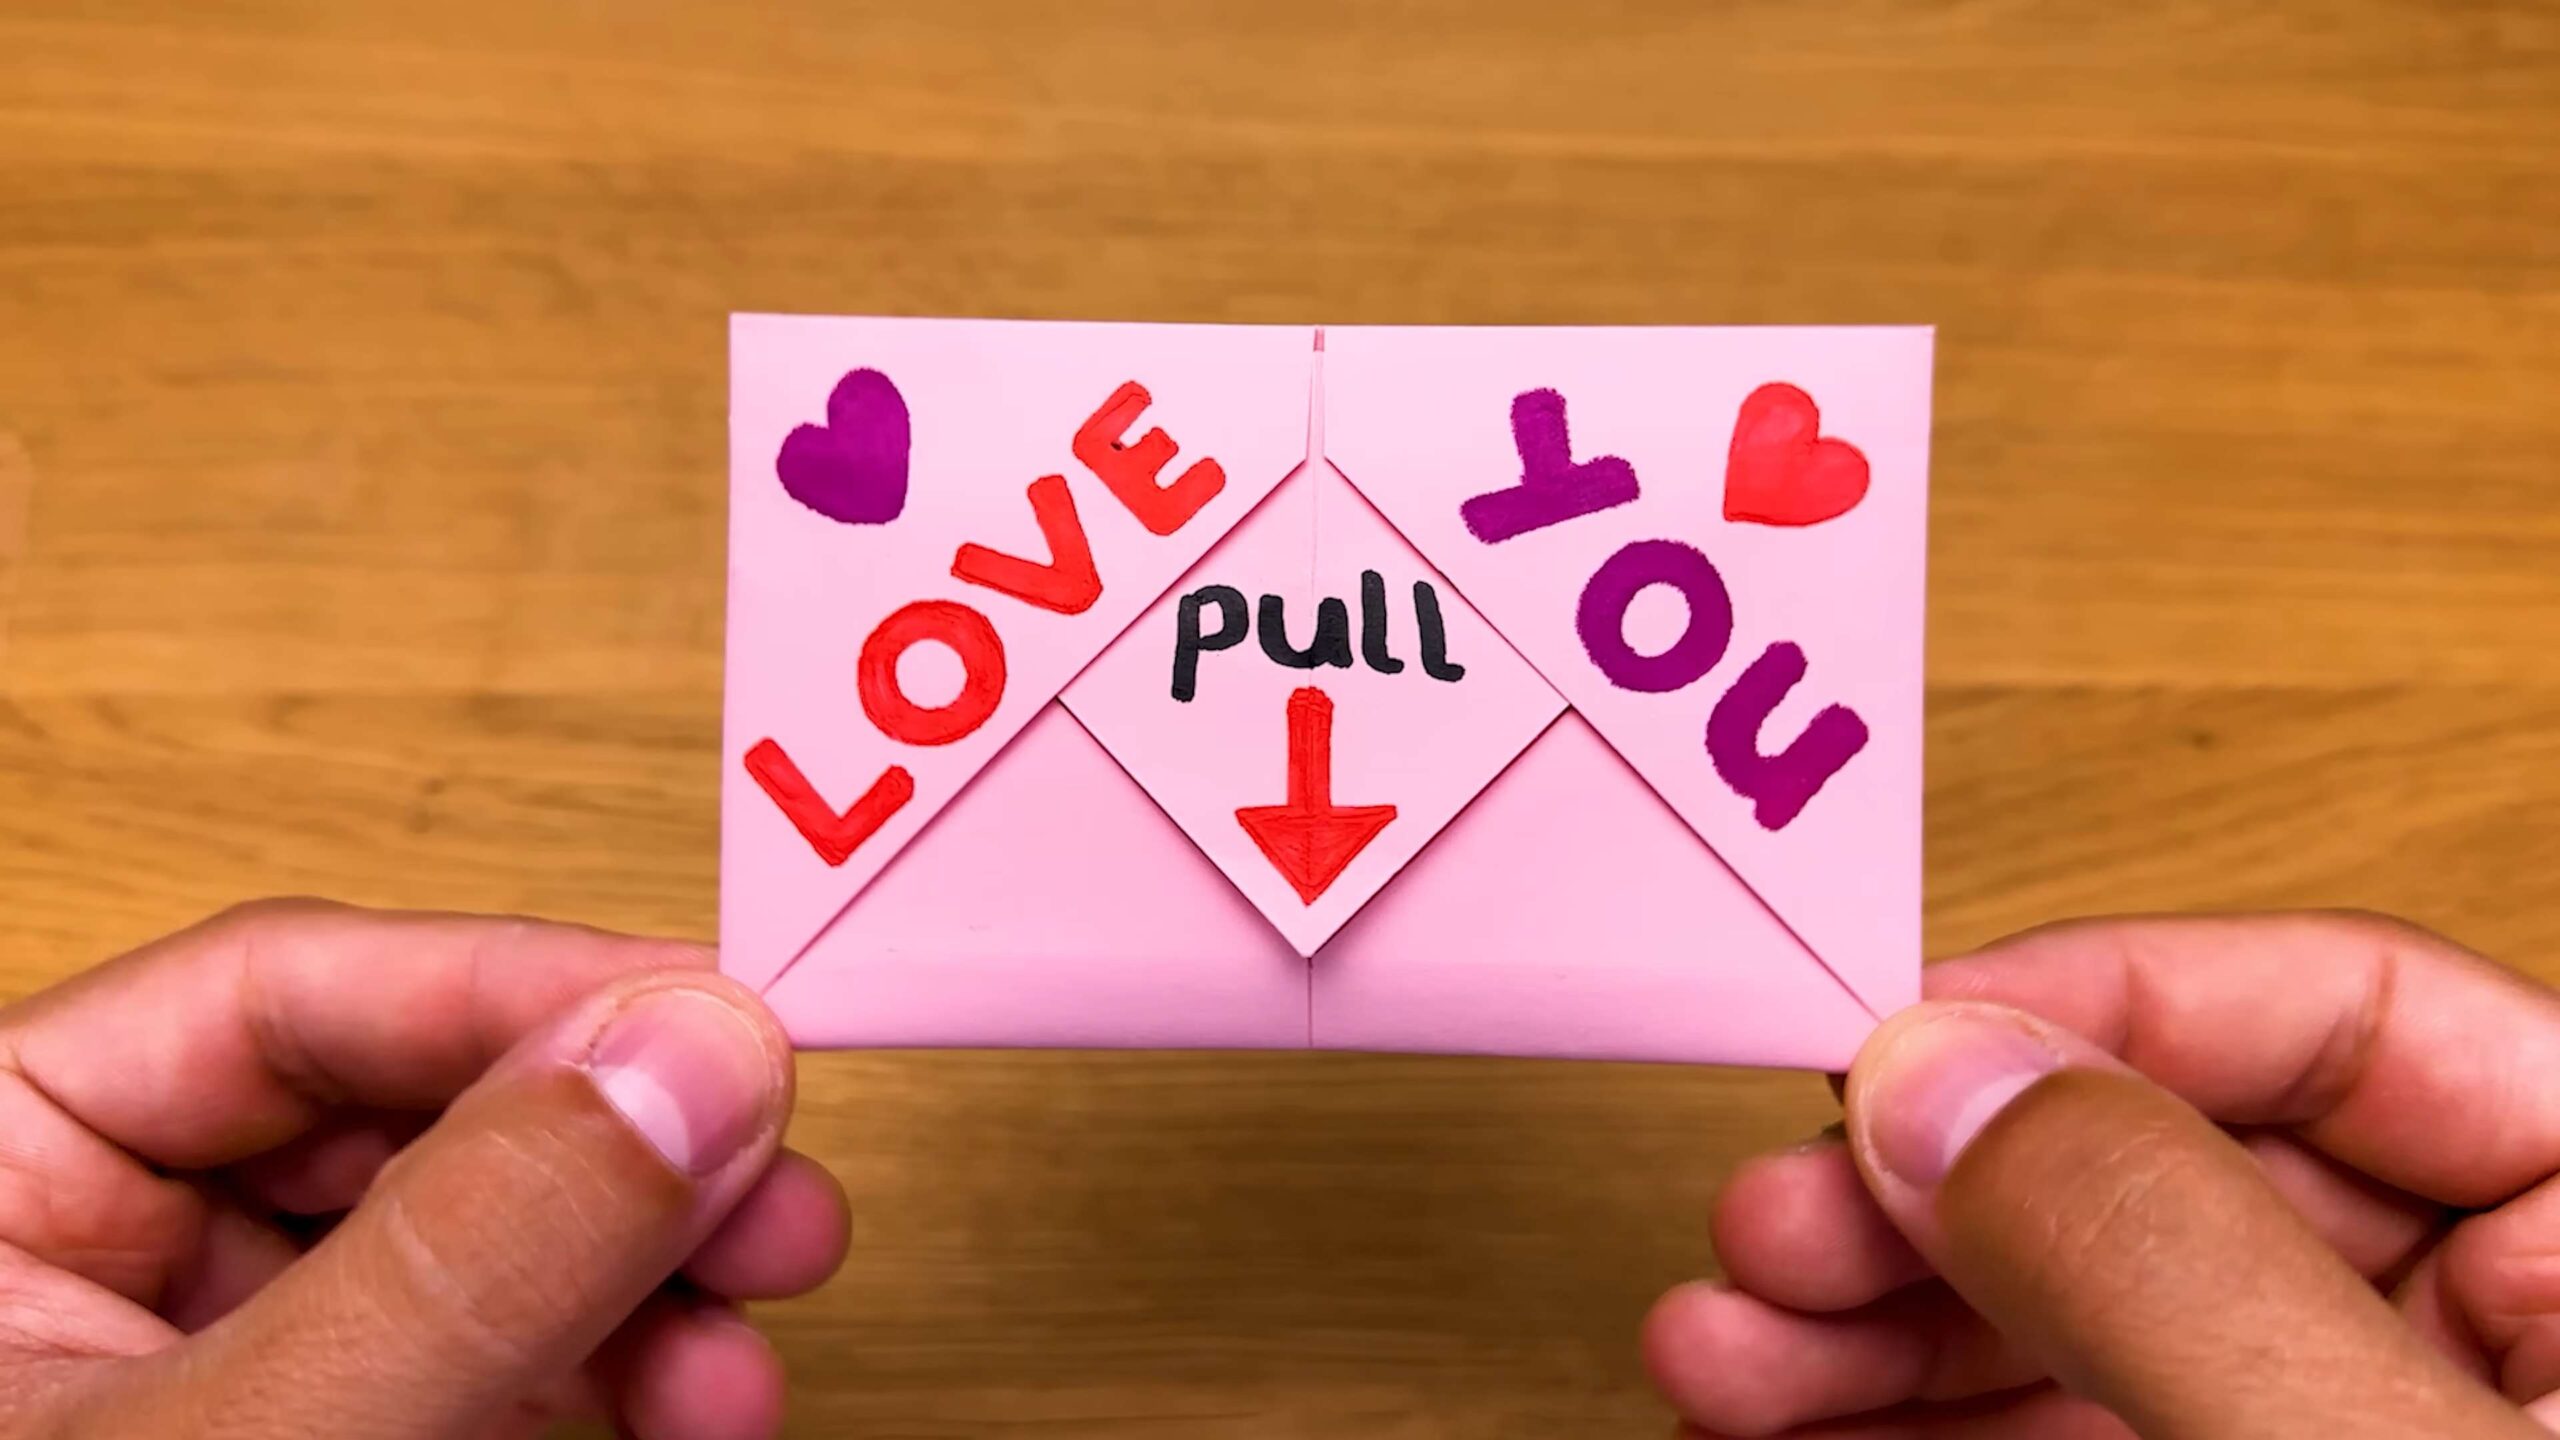 LOVE
YOU
pull